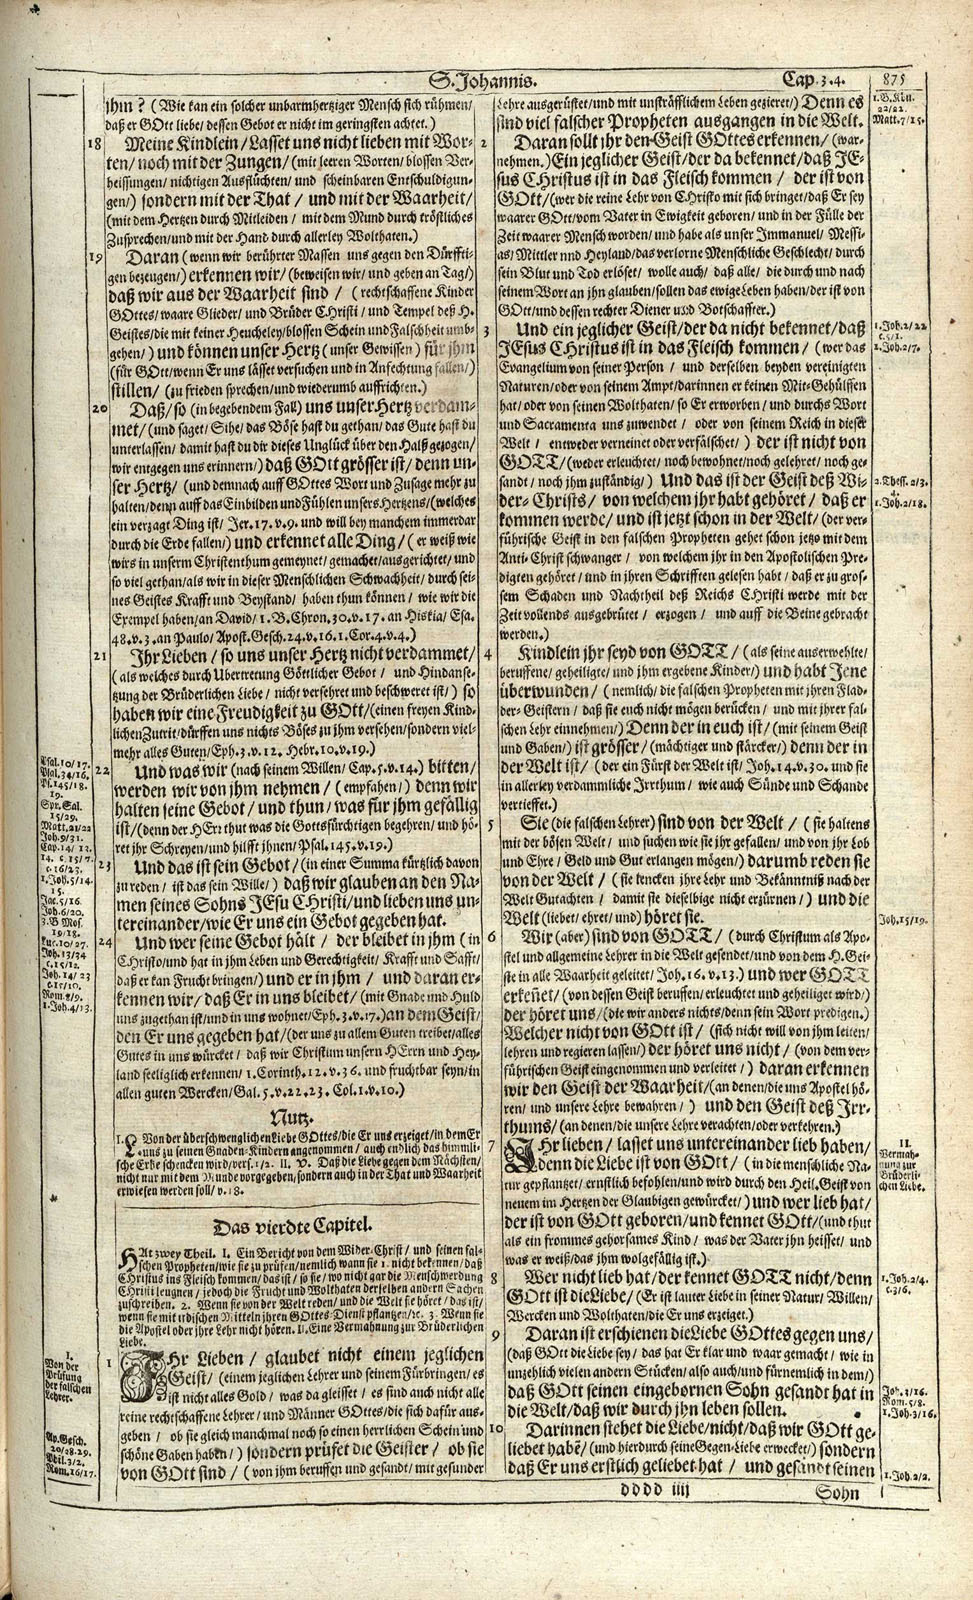 S. Johannis.
Cap. 3. 4.
875
ihm? (Wie kan ein solcher unbarmhertziger Mensch sich rühmen/
daß er GOtt liebe/ dessen Gebot er nicht im geringsten achtet.)
18 Meine Kindlein/ Lasset uns nicht lieben mit Wor-
ten/ noch mit der Zungen/ (mit leeren Worten/ blossen Ver-
heissungen/ nichtigen Ausflüchten/ und scheinbaren Entschuldigun-
gen/) sondern mit der That/ und mit der Waarheit/
(mit dem Hertzen durch Mitleiden/ mit dem Mund durch tröstliches
Zusprechen/ und mit der Hand durch allerley Wolthaten.)
19 Daran (wenn wir berührter Massen uns gegen den Dürffti-
gen bezeugen/) erkennen wir/ (beweisen wir/ und geben an Tag/)
daß wir aus der Waarheit sind/ (rechtschaffene Kinder
GOttes/ waare Glieder/ und Brüder CHristi/ und Tempel deß H.
Geistes/ die mit keiner Heucheley/ blossen Schein und Falschheit umb-
gehen/) und können unser Hertz (unser Gewissen) für jhm
(für GOtt/ wenn Er uns lässet versuchen und in Anfechtung fallen/)
stillen/ (zu frieden sprechen/ und wiederumb auffrichten.)
20 Daß/ so (in begebendem Fall) uns unser Hertz verdam-
met/ (und saget/ Sihe/ das Böse hast du gethan/ das Gute hast du
unterlassen/ damit hast du dir dieses Unglück über den Halß gezogen/
wir entgegen uns erinnern/) daß GOtt grösser ist/ denn un-
ser Hertz/ (und demnach auff GOttes Wort und Zusage mehr zu
halten/ denn auff das Einbilden und Fühlen unsers Hertzens/ (welches
ein verzagt Ding ist/ Jer. 17. v. 9. und will bey manchem immerdar
durch die Erde fallen/) und erkennet alle Ding/ (er weiß wie
wirs in unserm Christenthum gemeynet/ gemachet/ ausgerichtet/ und
so viel gethan/ als wir in dieser Menschlichen Schwachheit/ durch sei-
nes Geistes Krafft und Beystand/ haben thun können/ wie wir die
Exempel haben/ an David/ 1. B. Chron. 30. v. 17. an Hiskia/ Esa.
48. v. 3. an Paulo/ Apost. Gesch. 24. v. 16. 1. Cor. 4. v. 4.)
21 Ihr Lieben/ so uns unser Hertz nicht verdammet/
(als welches durch Ubertretung Göttlicher Gebot/ und Hindanse-
tzung der Brüderlichen Liebe/ nicht versehret und beschweret ist/) so
haben wir eine Freudigkeit zu GOtt/ (einen freyen Kind-
lichen Zutrit/ dürffen uns nichts Böses zu jhm versehen/ sondern viel-
mehr alles Guten/ Eph. 3. v. 12. Hebr. 10. v. 19.)
22 Und was wir (nach seinem Willen/ Cap. 5. v. 14.) bitten/
werden wir von jhm nehmen/ (empfahen/) denn wir
halten seine Gebot/ und thun/ was für jhm gefällig
ist/ (denn der HErr thut was die Gottsfürchtigen begehren/ und hö-
ret jhr Schreyen/ und hilfft jhnen/ Psal. 145. v. 19.)
23 Und das ist sein Gebot/ (in einer Summa kürtzlich davon
zu reden/ ist das sein Wille/) daß wir glauben an den Na-
men seines Sohns JEsu Christi/ und lieben uns un-
tereinander/ wie Er uns ein Gebot gegeben hat.
24 Und wer seine Gebot hält/ der bleibet in jhm (in
CHristo/ und hat in jhm Leben und Gerechtigkeit/ Krafft und Safft/
daß er kan Frucht bringen/) und er in jhm/ und daran er-
kennen wir/ daß Er in uns bleibet/ (mit Gnade und Huld
uns zugethan ist/ und in uns wohnet/ Eph. 3. v. 17.) an dem Geist/
den Er uns gegeben hat/ (der uns zu allem Guten treibet/ alles
Gutes in uns würcket/ daß wir Christum unsern HErrn und Hey-
land seeliglich erkennen/ 1. Corinth. 12. v. 36. und fruchtbar seyn/ in
allen guten Wercken/ Gal. 5. v. 22. 23. Col. 1. v. 10.)
Nutz.
I. Von der überschwenglichen Liebe GOttes/ die Er uns erzeiget/ in dem Er
uns zu seinen Gnaden-Kindern angenommen/ auch endlich das himmli-
sche Erbe schencken wird/ vers. 1/2. II. V. Daß die Liebe gegen dem Nächsten/
nicht nur mit dem Munde vorgegeben/ sondern auch in der That und Waarheit
erwiesen werden soll/ v. 18.
Das vierdte Capitel.
HAt zwey Theil. I. Ein Bericht von dem Wider-Christ/ und seinen fal-
schen Propheten/ wie sie zu prüfen/ nemlich wann sie 1. nicht bekennen/ daß
Christus ins Fleisch kommen/ das ist/ so sie/ wo nicht gar die Menschwerdung
Christi leugnen/ jedoch die Frucht und Wolthaten derselben andern Sachen
zuschreiben. 2. Wenn sie von der Welt reden/ und die Welt sie höret/ das ist/
wenn sie mit irdischen Mitteln ihren GOttes-Dienst pflantzen/ ꝛc. 3. Wenn sie
die Apostel oder jhre Lehr nicht hören. II. Eine Vermahnung zur Brüderlichen
Liebe.
1 IHr Lieben/ glaubet nicht einem jeglichen
Geist/ (einem jeglichen Lehrer und seinem Fürbringen/ es
ist nicht alles Gold/ was da gleisset/ es sind auch nicht alle
reine rechtschaffene Lehrer/ und Männer GOttes/ die sich dafür aus-
geben/ ob sie gleich manchmal noch so einen herrlichen Schein und
schöne Gaben haben/) sondern prüfet die Geister/ ob sie
von GOtt sind/ (von jhm beruffen und gesandt/ mit gesunder
Psal. 10/17.
Psal. 34/16.
Ps. 145/18.
19.
Spr. Sal.
15/29.
Matt. 21/22
Joh. 9/31.
Cap. 14/13.
14. c. 15/7.
c. 16/23.
1. Joh. 5/14.
15.
Jac. 5/16.
Joh. 6/20.
3. B Mos.
19/18.
Luc. 10/27.
Joh. 13/34
c. 15/12.
Joh. 14/23
c. 15/10.
Rom. 8/9.
1. Joh. 4/13.
I.
Von der
Prüfung
der falschen
Lehrer.
Ap. Gesch.
20/28. 29.
Phil. 3/2.
Rom. 16/17.
Lehre ausgerüstet/ und mit unsträfflichem Leben gezieret/) Denn es
sind viel falscher Propheten ausgangen in die Welt.
2 Daran sollt jhr den Geist GOttes erkennen/ (war-
nehmen.) Ein jeglicher Geist/ der da bekennet/ daß JE-
sus CHristus ist in das Fleisch kommen/ der ist von
GOtt/ (wer die reine Lehr von CHristo mit sich bringet/ daß Er sey
waarer GOtt/ vom Vater in Ewigkeit geboren/ und in der Fülle der
Zeit waarer Mensch worden/ und habe als unser Immanuel/ Messi-
as/ Mittler und Heyland/ das verlorne Menschliche Geschlecht/ durch
sein Blut und Tod erlöset/ wolle auch/ daß alle/ die durch und nach
seinem Wort an jhn glauben/ sollen das ewige Leben haben/ der ist von
GOtt/ und dessen rechter Diener und Botschaffter.)
3 Und ein jeglicher Geist/ der da nicht bekennet/ daß
JEsus CHristus ist in das Fleisch kommen/ (wer das
Evangelium von seiner Person/ und derselben beyden vereinigten
Naturen/ oder von seinem Ampt/ darinnen er keinen Mit-Gehülffen
hat/ oder von seinen Wolthaten/ so Er erworben/ und durchs Wort
und Sacramenta uns zuwendet/ oder von seinem Reich in dieser
Welt/ entweder verneinet oder verfälschet/) der ist nicht von
GOTT/ (weder erleuchtet/ noch bewohnet/ noch gelehret/ noch ge-
sandt/ noch jhm zuständig/) Und das ist der Geist deß Wi-
der-Christs/ von welchem jhr habt gehöret/ daß er
kommen werde/ und ist jetzt schon in der Welt/ (der ver-
führische Geist in den falschen Propheten gehet schon jetzo mit dem
Anti-Christ schwanger/ von welchem jhr in den Apostolischen Pre-
digten gehöret/ und in jhren Schrifften gelesen habt/ daß er zu gros-
sem Schaden und Nachtheil deß Reichs CHristi werde mit der
Zeit vollends ausgebrütet/ erzogen/ und auff die Beine gebracht
werden.)
4 Kindlein jhr seyd von GOTT/ (als seine auserwehlte/
beruffene/ geheiligte/ und jhm ergebene Kinder/) und habt Jene
überwunden/ (nemlich/ die falschen Propheten mit jhren Flad-
der-Geistern/ daß sie euch nicht mögen berücken/ und mit jhrer fal-
schen Lehr einnehmen/) Denn der in euch ist/ (mit seinem Geist
und Gaben/) ist grösser/ (mächtiger und stärcker/) denn der in
der Welt ist/ (der ein Fürst der Welt ist/ Joh. 14. v. 30. und sie
in allerley verdammliche Irrthum/ wie auch Sünde und Schande
vertieffet.)
5 Sie (die falschen Lehrer) sind von der Welt/ (sie haltens
mit der bösen Welt/ und suchen wie sie jhr gefallen/ und von jhr Lob
und Ehre/ Geld und Gut erlangen mögen/) darumb reden sie
von der Welt/ (sie lencken jhre Lehr und Bekänntniß nach der
Welt Gutachten/ damit sie dieselbige nicht erzürnen/) und die
Welt (liebet/ ehret/ und) höret sie.
6 Wir (aber) sind von GOTT/ (durch Christum als Apo-
stel und allgemeine Lehrer in die Welt gesendet/ und von dem H. Gei-
ste in alle Waarheit geleitet/ Joh. 16. v. 13.) und wer GOTT
erkeñet/ (von dessen Geist beruffen/ erleuchtet und geheiliget wird/)
der höret uns/ (die wir anders nichts/ denn sein Wort predigen.)
Welcher nicht von GOtt ist/ (sich nicht will von jhm leiten/
lehren und regieren lassen/) der höret uns nicht/ (von dem ver-
führischen Geist eingenommen und verleitet/) daran erkennen
wir den Geist der Waarheit/ (an denen/ die uns Apostel hö-
ren/ und unsere Lehre bewahren/) und den Geist deß Irr-
thums/ (an denen/ die unsere Lehre verachten/ oder verkehren.)
7 IHr lieben/ lasset uns untereinander lieb haben/
denn die Liebe ist von GOtt/ (in die menschliche Na-
tur gepflantzet/ ernstlich befohlen/ und wird durch den Heil. Geist von
neuem im Hertzen der Glaubigen gewürcket/) und wer lieb hat/
der ist von GOtt geboren/ und kennet GOtt/ (und thut
als ein frommes gehorsames Kind/ was der Vater jhn heisset/ und
was er weiß/ das jhm wolgefällig ist.)
8 Wer nicht lieb hat/ der kennet GOTT nicht/ denn
GOtt ist die Liebe/ (Er ist lauter Liebe in seiner Natur/ Willen/
Wercken und Wolthaten/ die Er uns erzeiget.)
9 Daran ist erschienen die Liebe GOttes gegen uns/
(daß GOtt die Liebe sey/ das hat Er klar und waar gemacht/ wie in
unzehlich vielen andern Stücken/ also auch/ und fürnemlich in dem/)
daß GOtt seinen eingebornen Sohn gesandt hat in
die Welt/ daß wir durch jhn leben sollen.
10 Darinnen stehet die Liebe/ nicht/ daß wir GOtt ge-
liebet habẽ/ (und hierdurch seine Gegen-Liebe erwecket/) sondern
daß Er uns erstlich geliebet hat/ und gesandt seinen
dddd iiij
Sohn
1. B. Kön.
22/22.
Matt. 7/15.
1. Joh. 2/22
c. 5/1.
2. Joh. 2/7.
2. Thess. 2/3.
4.
1. Joh. 2/18.
Joh. 15/19.
II.
Vermah-
nung zur
Brüderli-
chen Liebe.
1. Joh. 2/4.
c. 3/6.
Joh. 3/16.
Rom. 5/8.
1. Joh. 3/16.
1. Joh. 2/2.